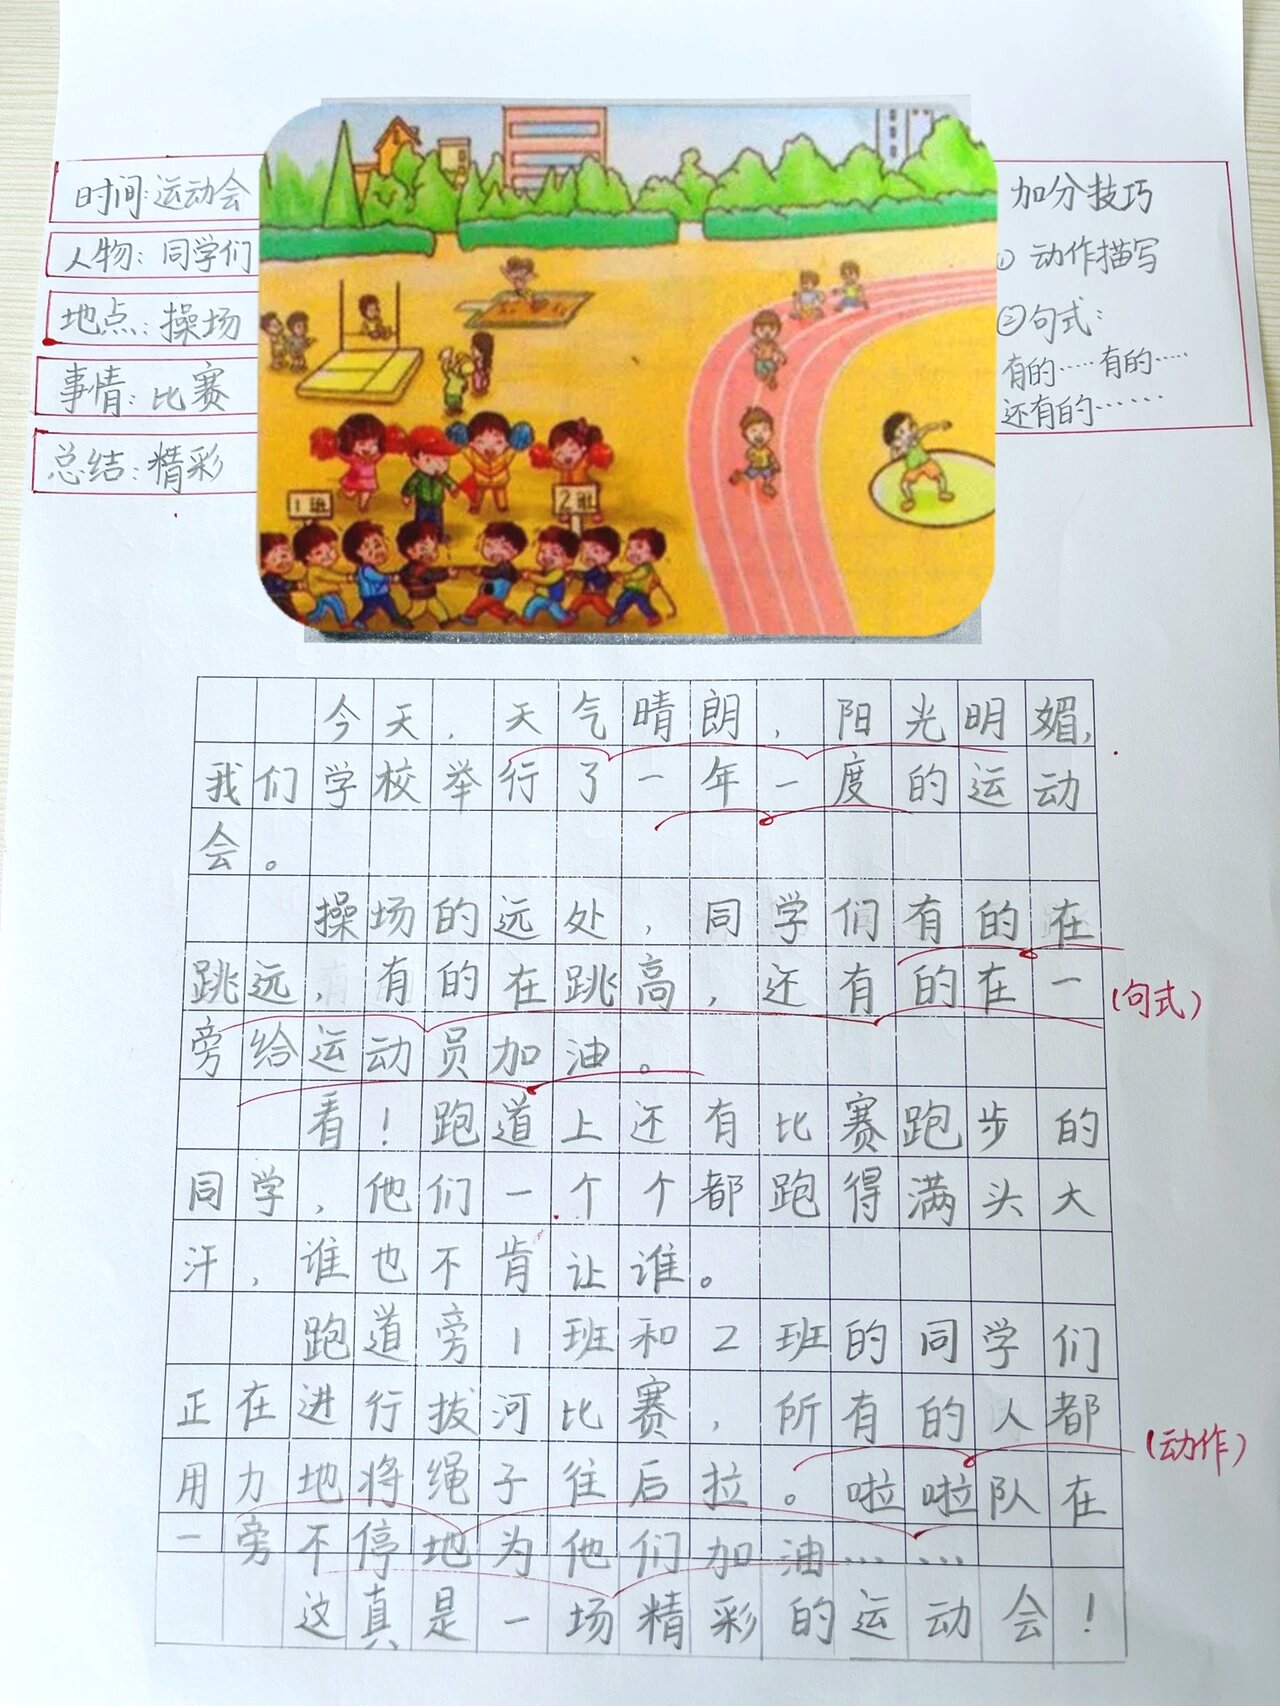 时间:运动会
人物:同学们
地点:操场
事情:比赛
总结:精彩
加分技巧
① 动作描写
②句式:
有的……有的……
还有的……
1班
2班
今天,天气晴朗,阳光明媚,
我们学校举行了一年一度的运动
会。
操场的远处,同学们有的在
跳远,有的在跳高,还有的在一
(句式)
旁给运动员加油。
看!跑道上还有比赛跑步的
同学,他们一个个都跑得满头大
汗,谁也不肯让谁。
跑道旁1班和2班的同学们
正在进行拔河比赛,所有的人都
(动作)
用力地将绳子往后拉。啦啦队在
一旁不停地为他们加油……
这真是一场精彩的运动会!